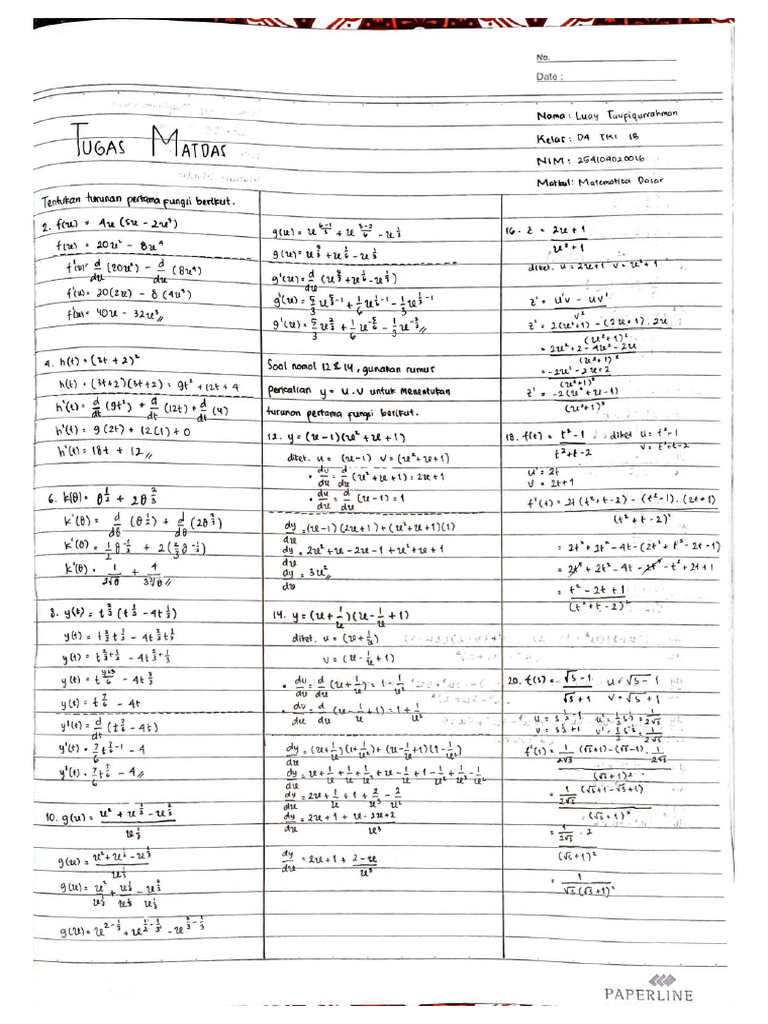 No.
Date :
TUGAS MATDAS
Nama : Luay Taufiqurrahman
Kelas : D4 TKI 1B
NIM : 254104020016
Matkul : Matematika Dasar
Tentukan turunan pertama fungsi berikut.
2. f(x) = 4x (5x − 2x³)
f(x) = 20x² − 8x⁴
f'(x) = d/dx (20x²) − d/dx (8x⁴)
f'(x) = 20(2x) − 8 (4x³)
f'(x) = 40x − 32x³ //
4. h(t) = (3t + 2)²
h(t) = (3t+2)(3t+2) = 9t² + 12t + 4
h'(t) = d/dt (9t²) + d/dt (12t) + d/dt (4)
h'(t) = 9 (2t) + 12 (1) + 0
h'(t) = 18t + 12 //
6. k(θ) = θ^1/2 + 2θ^2/3
k'(θ) = d/dθ (θ^1/2) + d/dθ (2θ^2/3)
k'(θ) = 1/2 θ^-1/2 + 2(2/3 θ^-1/3)
k'(θ) = 1/2√θ + 4/3∛θ //
8. y(t) = t^2/3 (t^1/2 − 4t^1/3)
y(t) = t^2/3 t^1/2 − 4t^2/3 t^1/3
y(t) = t^2/3+1/2 − 4t^2/3+1/3
y(t) = t^4+3/6 − 4t^3/3
y(t) = t^7/6 − 4t
y'(t) = d/dt (t^7/6 − 4t)
y'(t) = 7/6 t^7/6−1 − 4
10. g(x) = x² + x^1/2 − x^2/3 / x^1/3
g(x) = x² + x^1/2 − x^2/3 / x^1/3
g(x) = x²/x^1/3 + x^1/2/x^1/3 − x^2/3/x^1/3
g(x) = x^2−1/3 + x^1/2−1/3 − x^2/3−1/3
g(x) = x^6−1/3 + x^3−2/6 − x^1/3
g(x) = x^5/3 + x^1/6 − x^1/3
g'(x) = d/dx (x^5/3 + x^1/6 − x^1/3)
g'(x) = 5/3 x^5/3−1 + 1/6 x^1/6−1 − 1/3 x^1/3−1
g'(x) = 5/3 x^2/3 + 1/6 x^-5/6 − 1/3 x^-2/3 //
Soal nomol 12 & 14, gunakan rumus
perkalian y = u . v untuk menentukan
turunan pertama fungsi berikut.
12. y = (x − 1)(x² + x + 1)
diket. u = (x−1) v = (x² + x + 1)
• dv/dx = d/dx (x² + x + 1) = 2x + 1
• du/dx = d/dx (x − 1) = 1
dy/dx = (x−1)(2x+1) + (x²+x+1)(1)
dy/dx = 2x² + x − 2x − 1 + x² + x + 1
dy/dx = 3x² //
14. y = (x + 1/x)(x − 1/x + 1)
diket. u = (x + 1/x)
v = (x − 1/x + 1)
• du/dx = d/dx (x + 1/x) = 1 − 1/x²
• dv/dx = d/dx (x − 1/x + 1) = 1 + 1/x²
dy/dx = (x + 1/x)(1 + 1/x²) + (x − 1/x + 1)(1 − 1/x²)
dy/dx = x + 1/x + 1/x + 1/x³ + x − 1/x + 1 − 1/x + 1/x³ − 1/x²
dy/dx = 2x + 1 + 2/x³ − 2/x²
dy/dx = 2x + 1 + x − 2x + 2 / x³
dy/dx = 2x + 1 + 2 − x / x³
16. z = 2x + 1 / x² + 1
diket. u = 2x+1 v = x² + 1
z' = u'v − uv' / v²
z' = 2(x²+1) − (2x+1) . 2x / (x² + 1)²
= 2x² + 2 − 4x² − 2x / (x² + 1)²
= −2x² − 2x + 2 / (x² + 1)²
z' = −2(x² + x − 1) / (x² + 1)²
18. f(t) = t² − 1 / t² + t − 2 diket u = t² − 1
v = t² + t − 2
u' = 2t
v = 2t + 1
f'(t) = 2t (t² + t − 2) − (t² − 1) . (2t + 1) / (t² + t − 2)²
= t² − 2t + 1 / (t² + t − 2)²
20. f(s) = √s − 1 / √s + 1 u = √s − 1
v = √s + 1
f'(1) = 1/2√s (√s+1) − (√s−1) . 1/2√s / (√s + 1)²
= 1/2√s (√s+1 − √s+1) / (√s + 1)²
= 1/2√s . 2 / (√s + 1)²
= 1 / √s (√s + 1)²
PAPERLINE